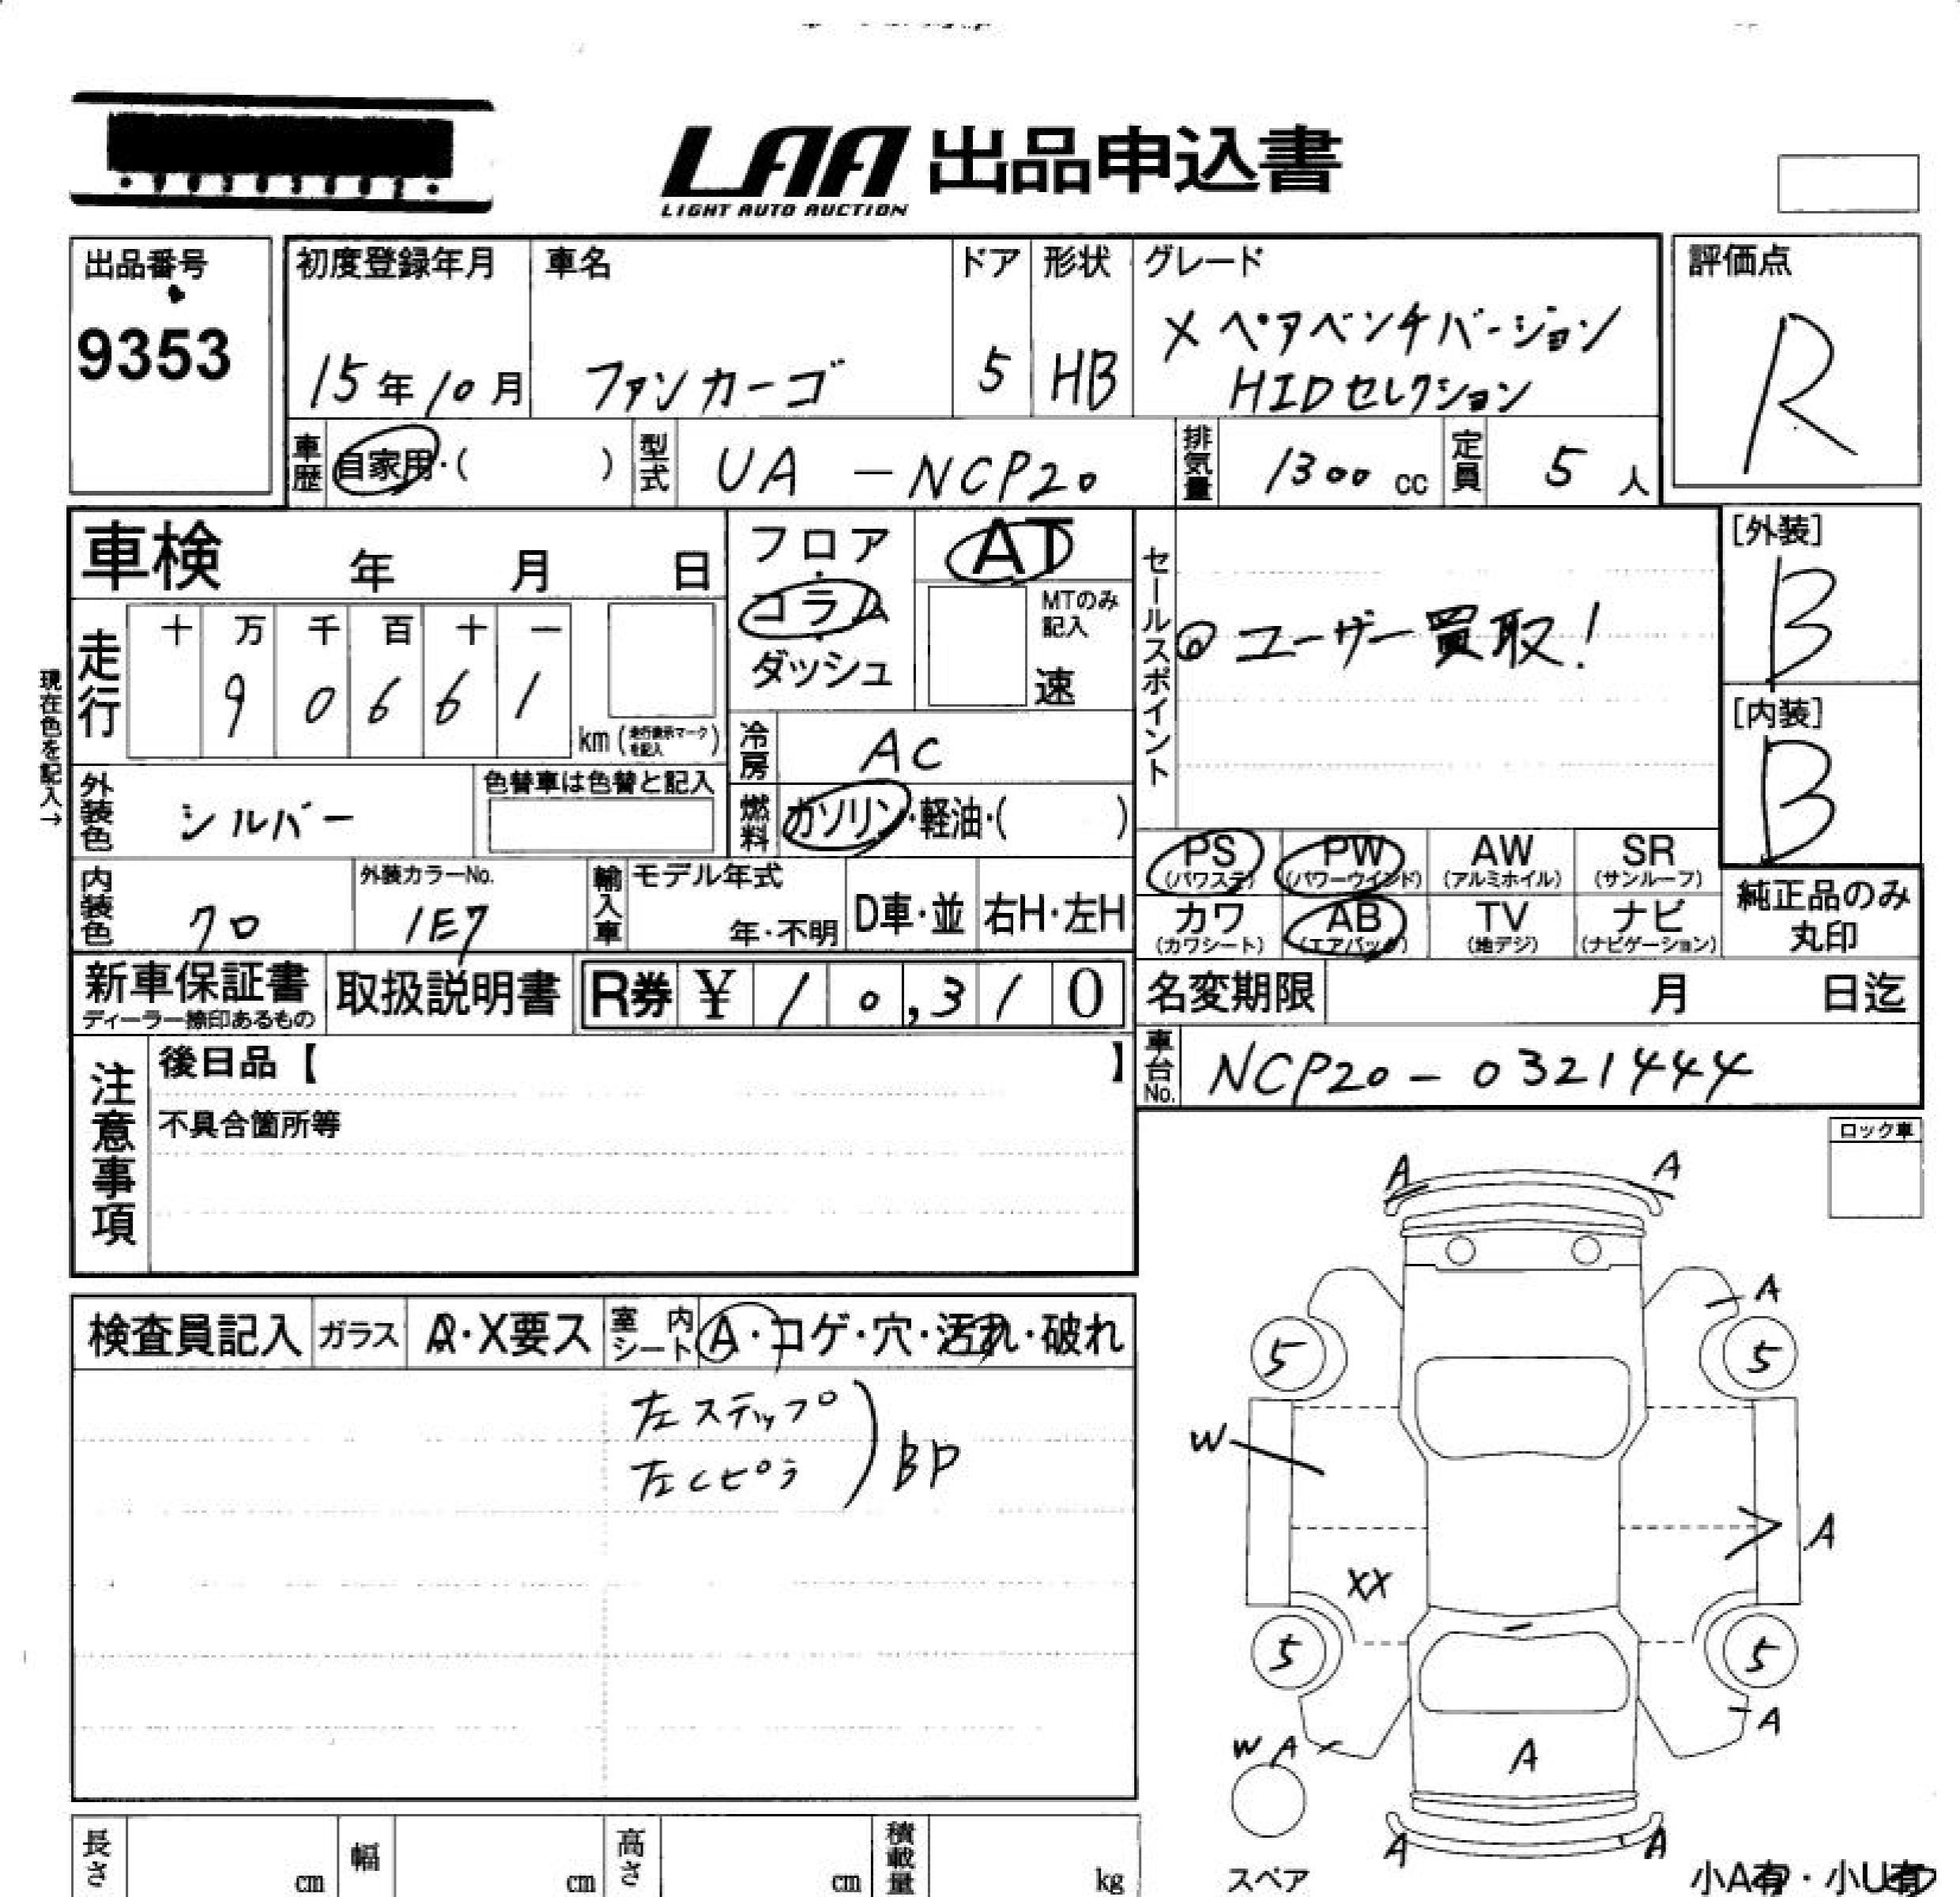 LAA 出品申込書
LIGHT AUTO AUCTION
出品番号
9353
初度登録年月
15年10月
車名
ファンカーゴ
ドア
5
形状
HB
グレード
X ペアベンチバージョン
HIDセレクション
評価点
R
車歴
自家用・( )
型式
UA - NCP20
排気量
1300 cc
定員
5 人
車検 年 月 日
フロア・コラム・ダッシュ
AT
MTのみ記入
速
セールスポイント
◎ユーザー買取!
[外装]
B
[内装]
B
現在色を記入→
走行
十 万 千 百 十 一
9 0 6 6 1
km (走行表示マークを記入)
冷房
AC
外装色
シルバー
色替車は色替と記入
燃料
ガソリン・軽油・( )
PS (パワステ)
PW (パワーウインド)
AW (アルミホイル)
SR (サンルーフ)
カワ (カワシート)
AB (エアバック)
TV (地デジ)
ナビ (ナビゲーション)
純正品のみ丸印
内装色
クロ
外装カラーNo.
1E7
輸入車
モデル年式
年・不明
D車・並
右H・左H
新車保証書
ディーラー捺印あるもの
取扱説明書
R券 ¥ 10,310
名変期限 月 日迄
車台No.
NCP20-0321444
注意事項
後日品【 】
不具合箇所等
ロック車
検査員記入
ガラス
A・X要ス
室内シート
A・コゲ・穴・汚れ・破れ
左ステップ
左Cピラ
BP
A A
A
5 5
W
A
XX
5 5
A
W A
A
A A
スペア
小A有・小U有
長さ cm
幅 cm
高さ cm
積載量 kg